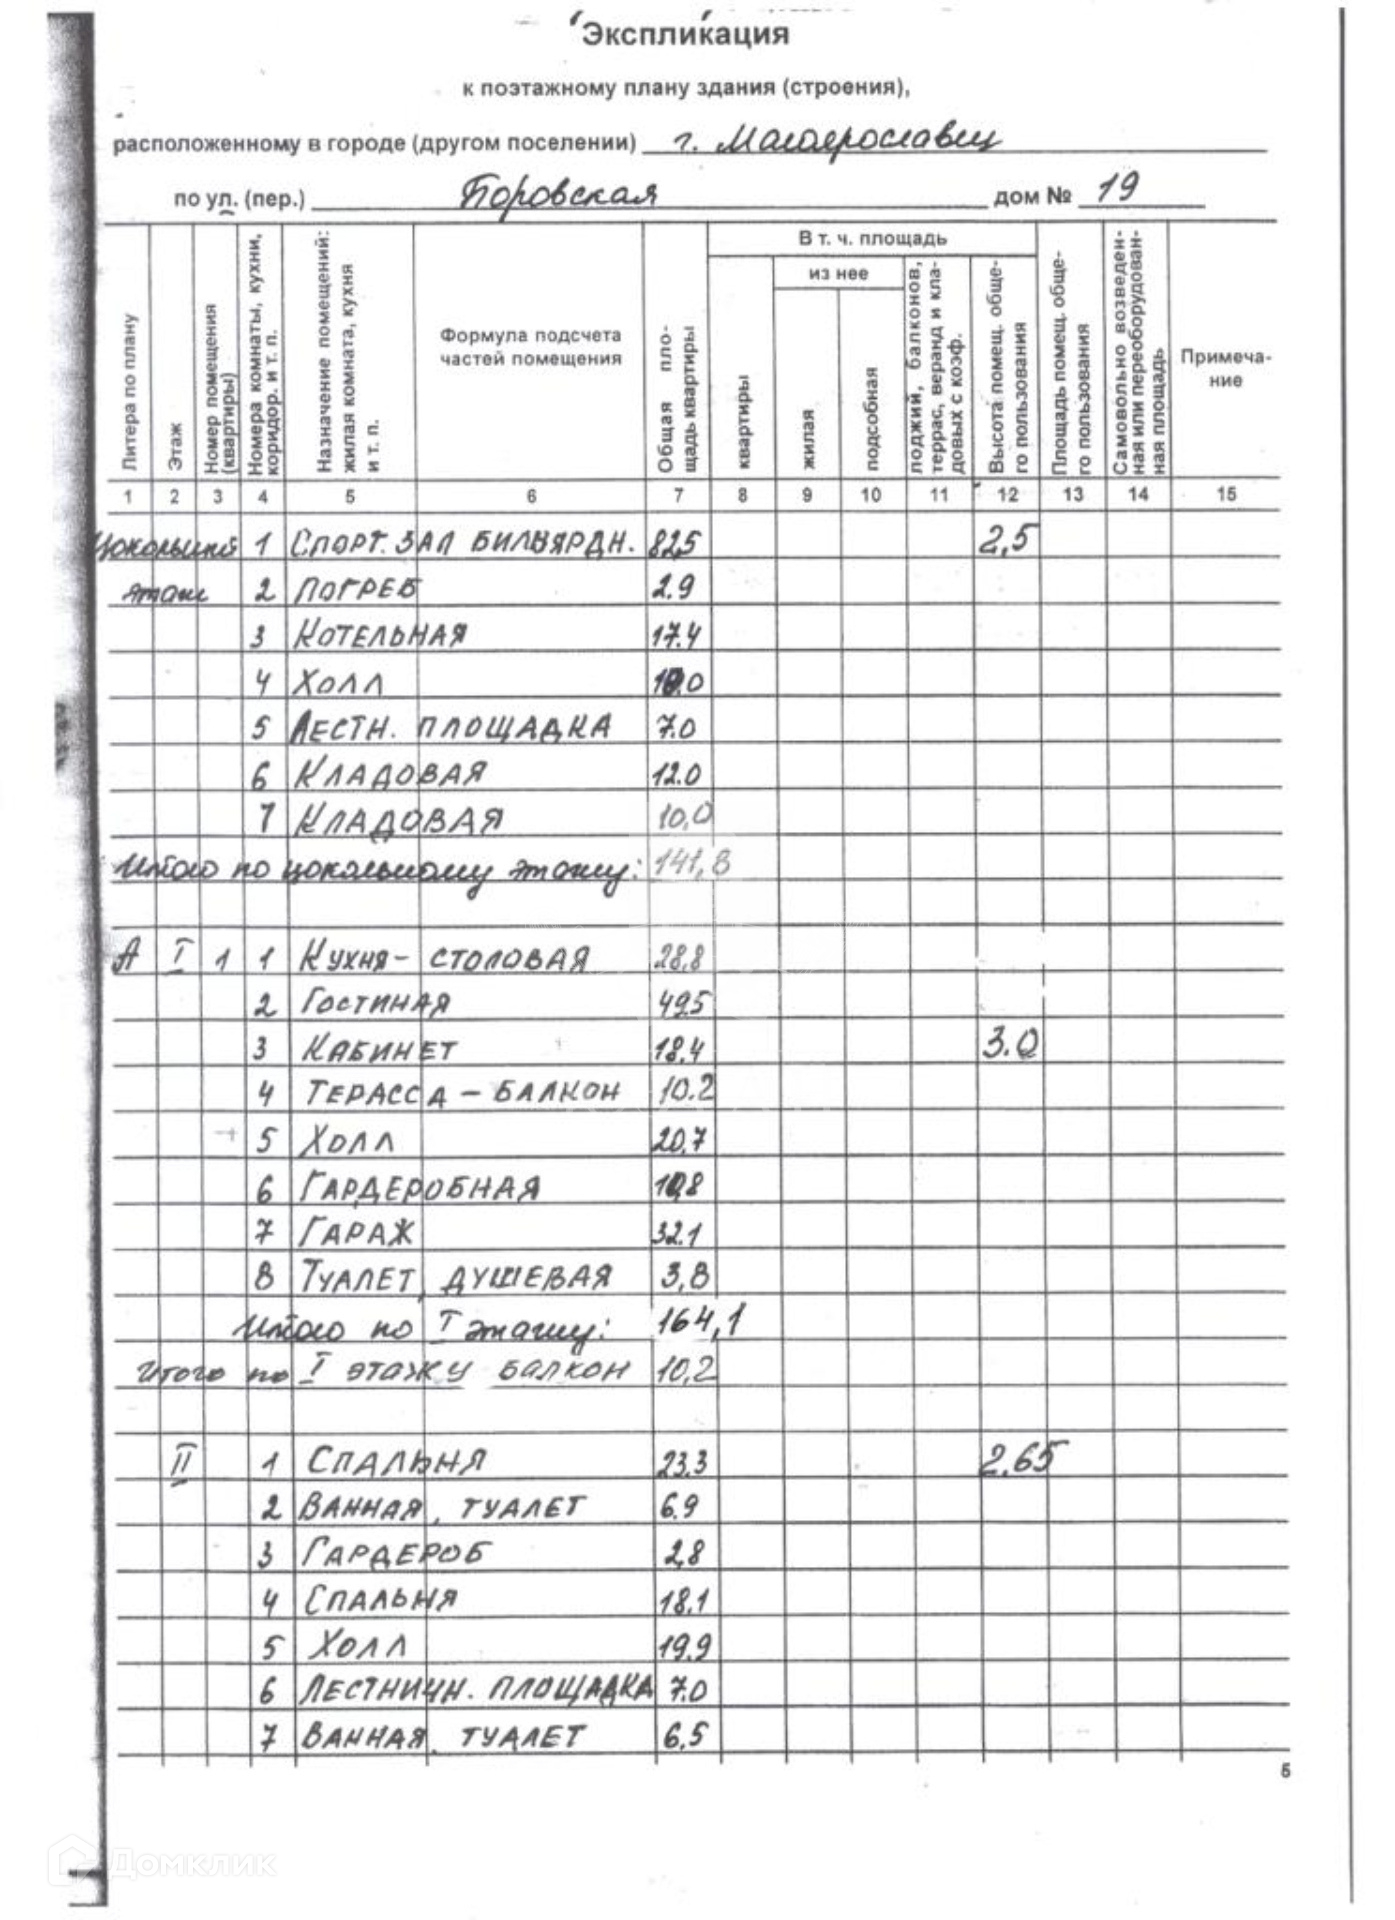 Экспликация
к поэтажному плану здания (строения),
расположенному в городе (другом поселении) г. Малоярославец
по ул. (пер.) Боровская дом № 19
Литера по плану
Этаж
Номер помещения (квартиры)
Номера комнаты, кухни, коридор. и т. п.
Назначение помещений: жилая комната, кухня и т. п.
Формула подсчета частей помещения
Общая пло- щадь квартиры
В т. ч. площадь
квартиры
из нее
жилая
подсобная
лоджий, балконов, террас, веранд и кла- довых с коэф.
Высота помещ. обще- го пользования
Площадь помещ. обще- го пользования
Самовольно возведен- ная или переоборудован- ная площадь
Примеча- ние
1 2 3 4 5 6 7 8 9 10 11 12 13 14 15
Цокольный 1 СПОРТ. ЗАЛ БИЛЬЯРДН. 82,5 2,5
этаж 2 ПОГРЕБ 2.9
3 КОТЕЛЬНАЯ 17.4
4 ХОЛЛ 10.0
5 ЛЕСТН. ПЛОЩАДКА 7.0
6 КЛАДОВАЯ 12.0
7 КЛАДОВАЯ 10,0
Итого по цокольному этажу: 141,8
А I 1 1 КУХНЯ - СТОЛОВАЯ 28,8
2 ГОСТИНАЯ 49,5
3 КАБИНЕТ 18,4 3.0
4 ТЕРАССА - БАЛКОН 10.2
5 ХОЛЛ 20,7
6 ГАРДЕРОБНАЯ 10,8
7 ГАРАЖ 32.1
8 ТУАЛЕТ, ДУШЕВАЯ 3,8
Итого по I этажу: 164,1
Итого по I ЭТАЖУ БАЛКОН 10,2
II 1 СПАЛЬНЯ 23.3 2.65
2 ВАННАЯ, ТУАЛЕТ 6.9
3 ГАРДЕРОБ 2,8
4 СПАЛЬНЯ 18,1
5 ХОЛЛ 19,9
6 ЛЕСТНИЧН. ПЛОЩАДКА 7.0
7 ВАННАЯ, ТУАЛЕТ 6,5
5
Домклик